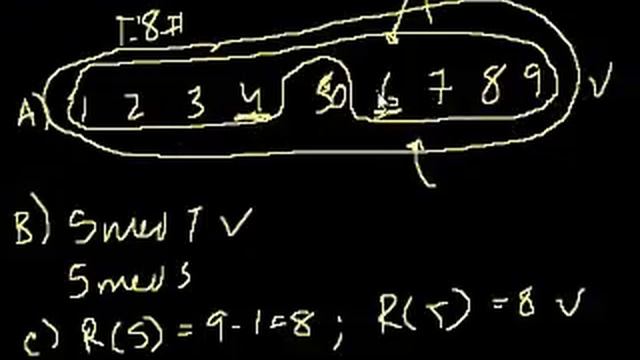 A) 1 2 3 4 50 6 7 8 9 ✓
B) 5 med T ✓
5 med S
C) R(S) = 9-1=8 ; R(T) = 8 ✓